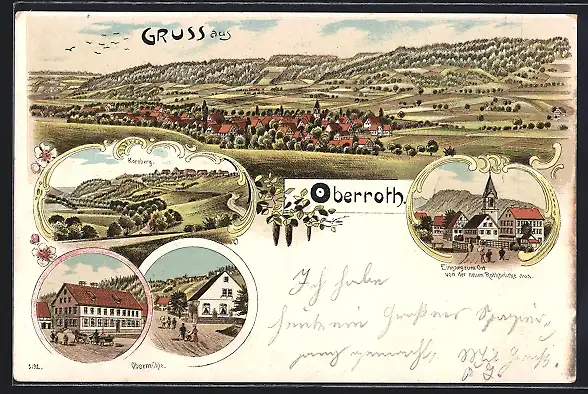 GRUSS aus
Kornberg.
Oberroth.
Eingang zum Ort
von der neuen Rothbrücke aus.
Ich habe
heute ein Großes Spazier-
gang gemacht. Mit Gruß
Obermühle.